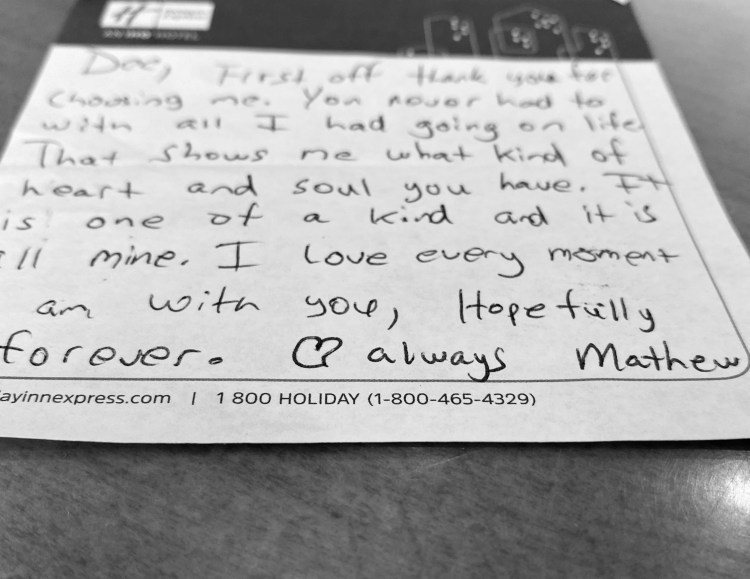 EXPRESS
AN IHG HOTEL
Dee, First off thank you for
choosing me. You never had to
with all I had going on life
That shows me what kind of
heart and soul you have. It
is one of a kind and it is
ll mine. I love every moment
am with you, Hopefully
forever. ♡ always Mathew
ayinnexpress.com | 1 800 HOLIDAY (1-800-465-4329)